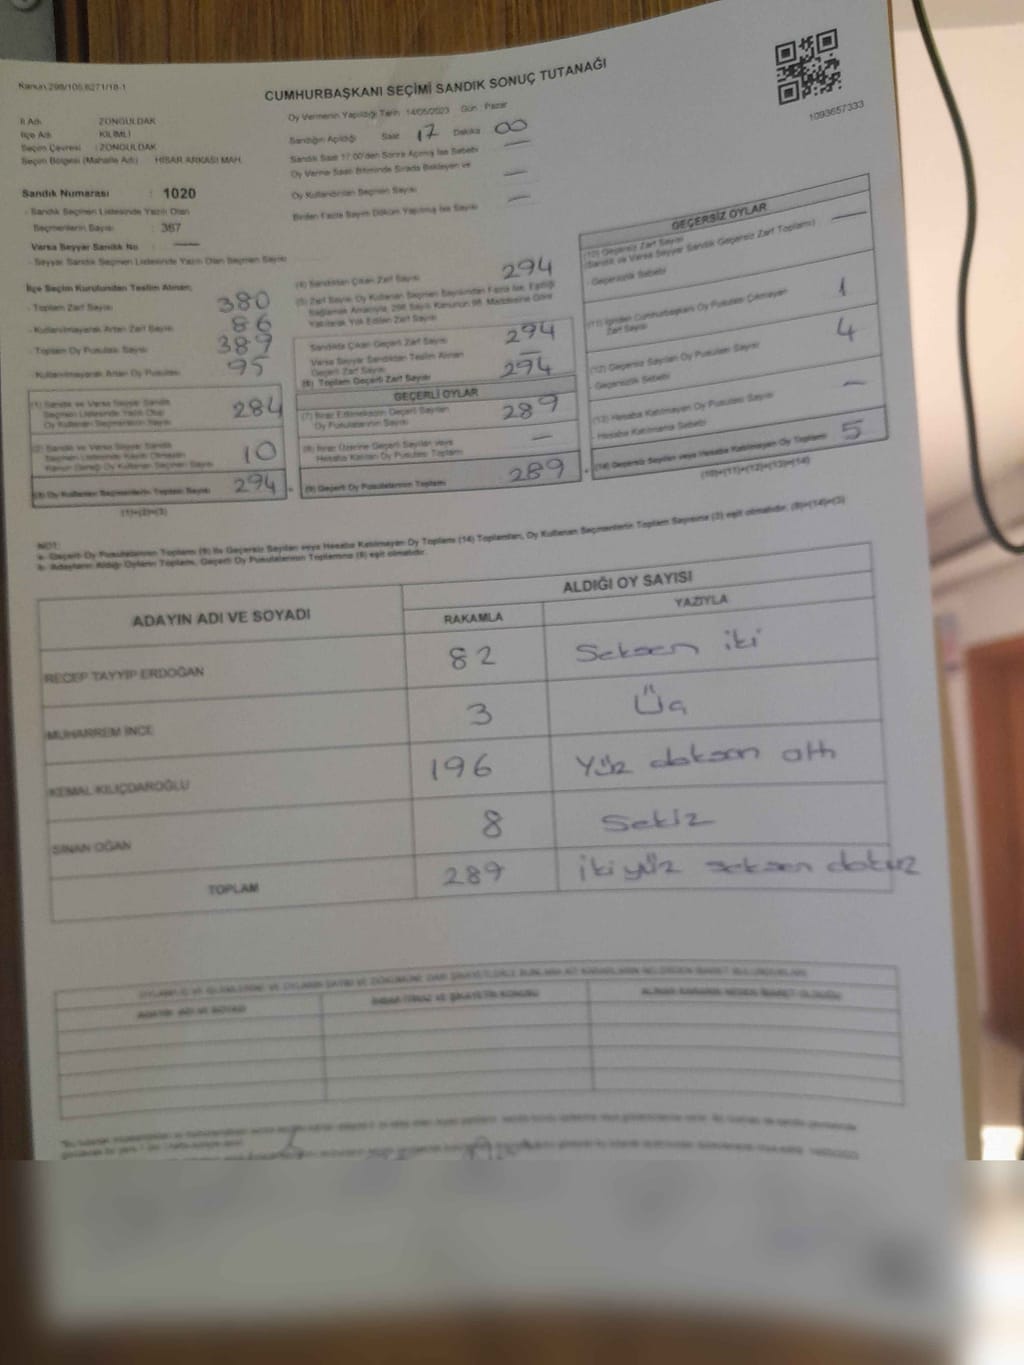 Kanun 298/105,6271/18-1
CUMHURBAŞKANI SEÇİMİ SANDIK SONUÇ TUTANAĞI
1093657333
İl Adı : ZONGULDAK
İlçe Adı : KİLİMLİ
Seçim Çevresi : ZONGULDAK
Seçim Bölgesi (Mahalle Adı) : HİSAR ARKASI MAH.
Oy Vermenin Yapıldığı Tarih 14/05/2023 Gün Pazar
Sandığın Açıldığı Saat 17 Dakika 00
Sandık Saat 17.00'den Sonra Açılmış İse Sebebi —
Oy Verme Saati Bitiminde Sırada Bekleyen ve
Oy Kullandırılan Seçmen Sayısı —
Birden Fazla Sayım Döküm Yapılmış İse Sayısı —
Sandık Numarası : 1020
- Sandık Seçmen Listesinde Yazılı Olan
Seçmenlerin Sayısı : 367
Varsa Seyyar Sandık No : —
- Seyyar Sandık Seçmen Listesinde Yazılı Olan Seçmen Sayısı
İlçe Seçim Kurulundan Teslim Alınan;
- Toplam Zarf Sayısı 380
- Kullanılmayarak Artan Zarf Sayısı 86
- Toplam Oy Pusulası Sayısı 389
- Kullanılmayarak Artan Oy Pusulası 95
(1) Sandık ve Varsa Seyyar Sandık
Seçmen Listesinde Yazılı Olup
Oy Kullanan Seçmen Sayısı 284
(2) Sandık ve Varsa Seyyar Sandık
Seçmen Listesinde Kayıtlı Olmayan
Kanun Gereği Oy Kullanan Seçmen Sayısı 10
(3) Oy Kullanan Seçmenlerin Toplam Sayısı 294
(1)+(2)=(3)
(4) Sandıktan Çıkan Zarf Sayısı 294
(5) Zarf Sayısı Oy Kullanan Seçmen Sayısından Fazla İse, Eşitliği
Sağlamak Amacıyla, 298 Sayılı Kanunun 98. Maddesine Göre
Yakılarak Yok Edilen Zarf Sayısı —
Sandıkta Çıkan Geçerli Zarf Sayısı 294
Varsa Seyyar Sandıktan Teslim Alınan
Geçerli Zarf Sayısı —
(6) Toplam Geçerli Zarf Sayısı 294
GEÇERLİ OYLAR
(7) İtiraz Edilmeksizin Geçerli Sayılan
Oy Pusulalarının Sayısı 289
(8) İtiraz Üzerine Geçerli Sayılan veya
Hesaba Katılan Oy Pusulası Toplamı —
(9) Geçerli Oy Pusulalarının Toplamı 289
GEÇERSİZ OYLAR
(10) Geçersiz Zarf Sayısı
(Sandık ve Varsa Seyyar Sandık Geçersiz Zarf Toplamı) —
- Geçersizlik Sebebi
(11) İçinden Cumhurbaşkanı Oy Pusulası Çıkmayan
Zarf Sayısı 1
(12) Geçersiz Sayılan Oy Pusulası Sayısı 4
- Geçersizlik Sebebi
(13) Hesaba Katılmayan Oy Pusulası Sayısı —
- Hesaba Katılmama Sebebi
(14) Geçersiz Sayılan veya Hesaba Katılmayan Oy Toplamı 5
(10)+(11)+(12)+(13)=(14)
NOT:
a- Geçerli Oy Pusulalarının Toplamı (9) ile Geçersiz Sayılan veya Hesaba Katılmayan Oy Toplamı (14) Toplamları, Oy Kullanan Seçmenlerin Toplam Sayısına (3) eşit olmalıdır. (9)+(14)=(3)
b- Adayların Aldığı Oyların Toplamı, Geçerli Oy Pusulalarının Toplamına (9) eşit olmalıdır.
ADAYIN ADI VE SOYADI
ALDIĞI OY SAYISI
RAKAMLA YAZIYLA
RECEP TAYYİP ERDOĞAN 82 Seksen iki
MUHARREM İNCE 3 Üç
KEMAL KILIÇDAROĞLU 196 Yüz doksan altı
SİNAN OĞAN 8 Sekiz
TOPLAM 289 iki yüz seksen dokuz